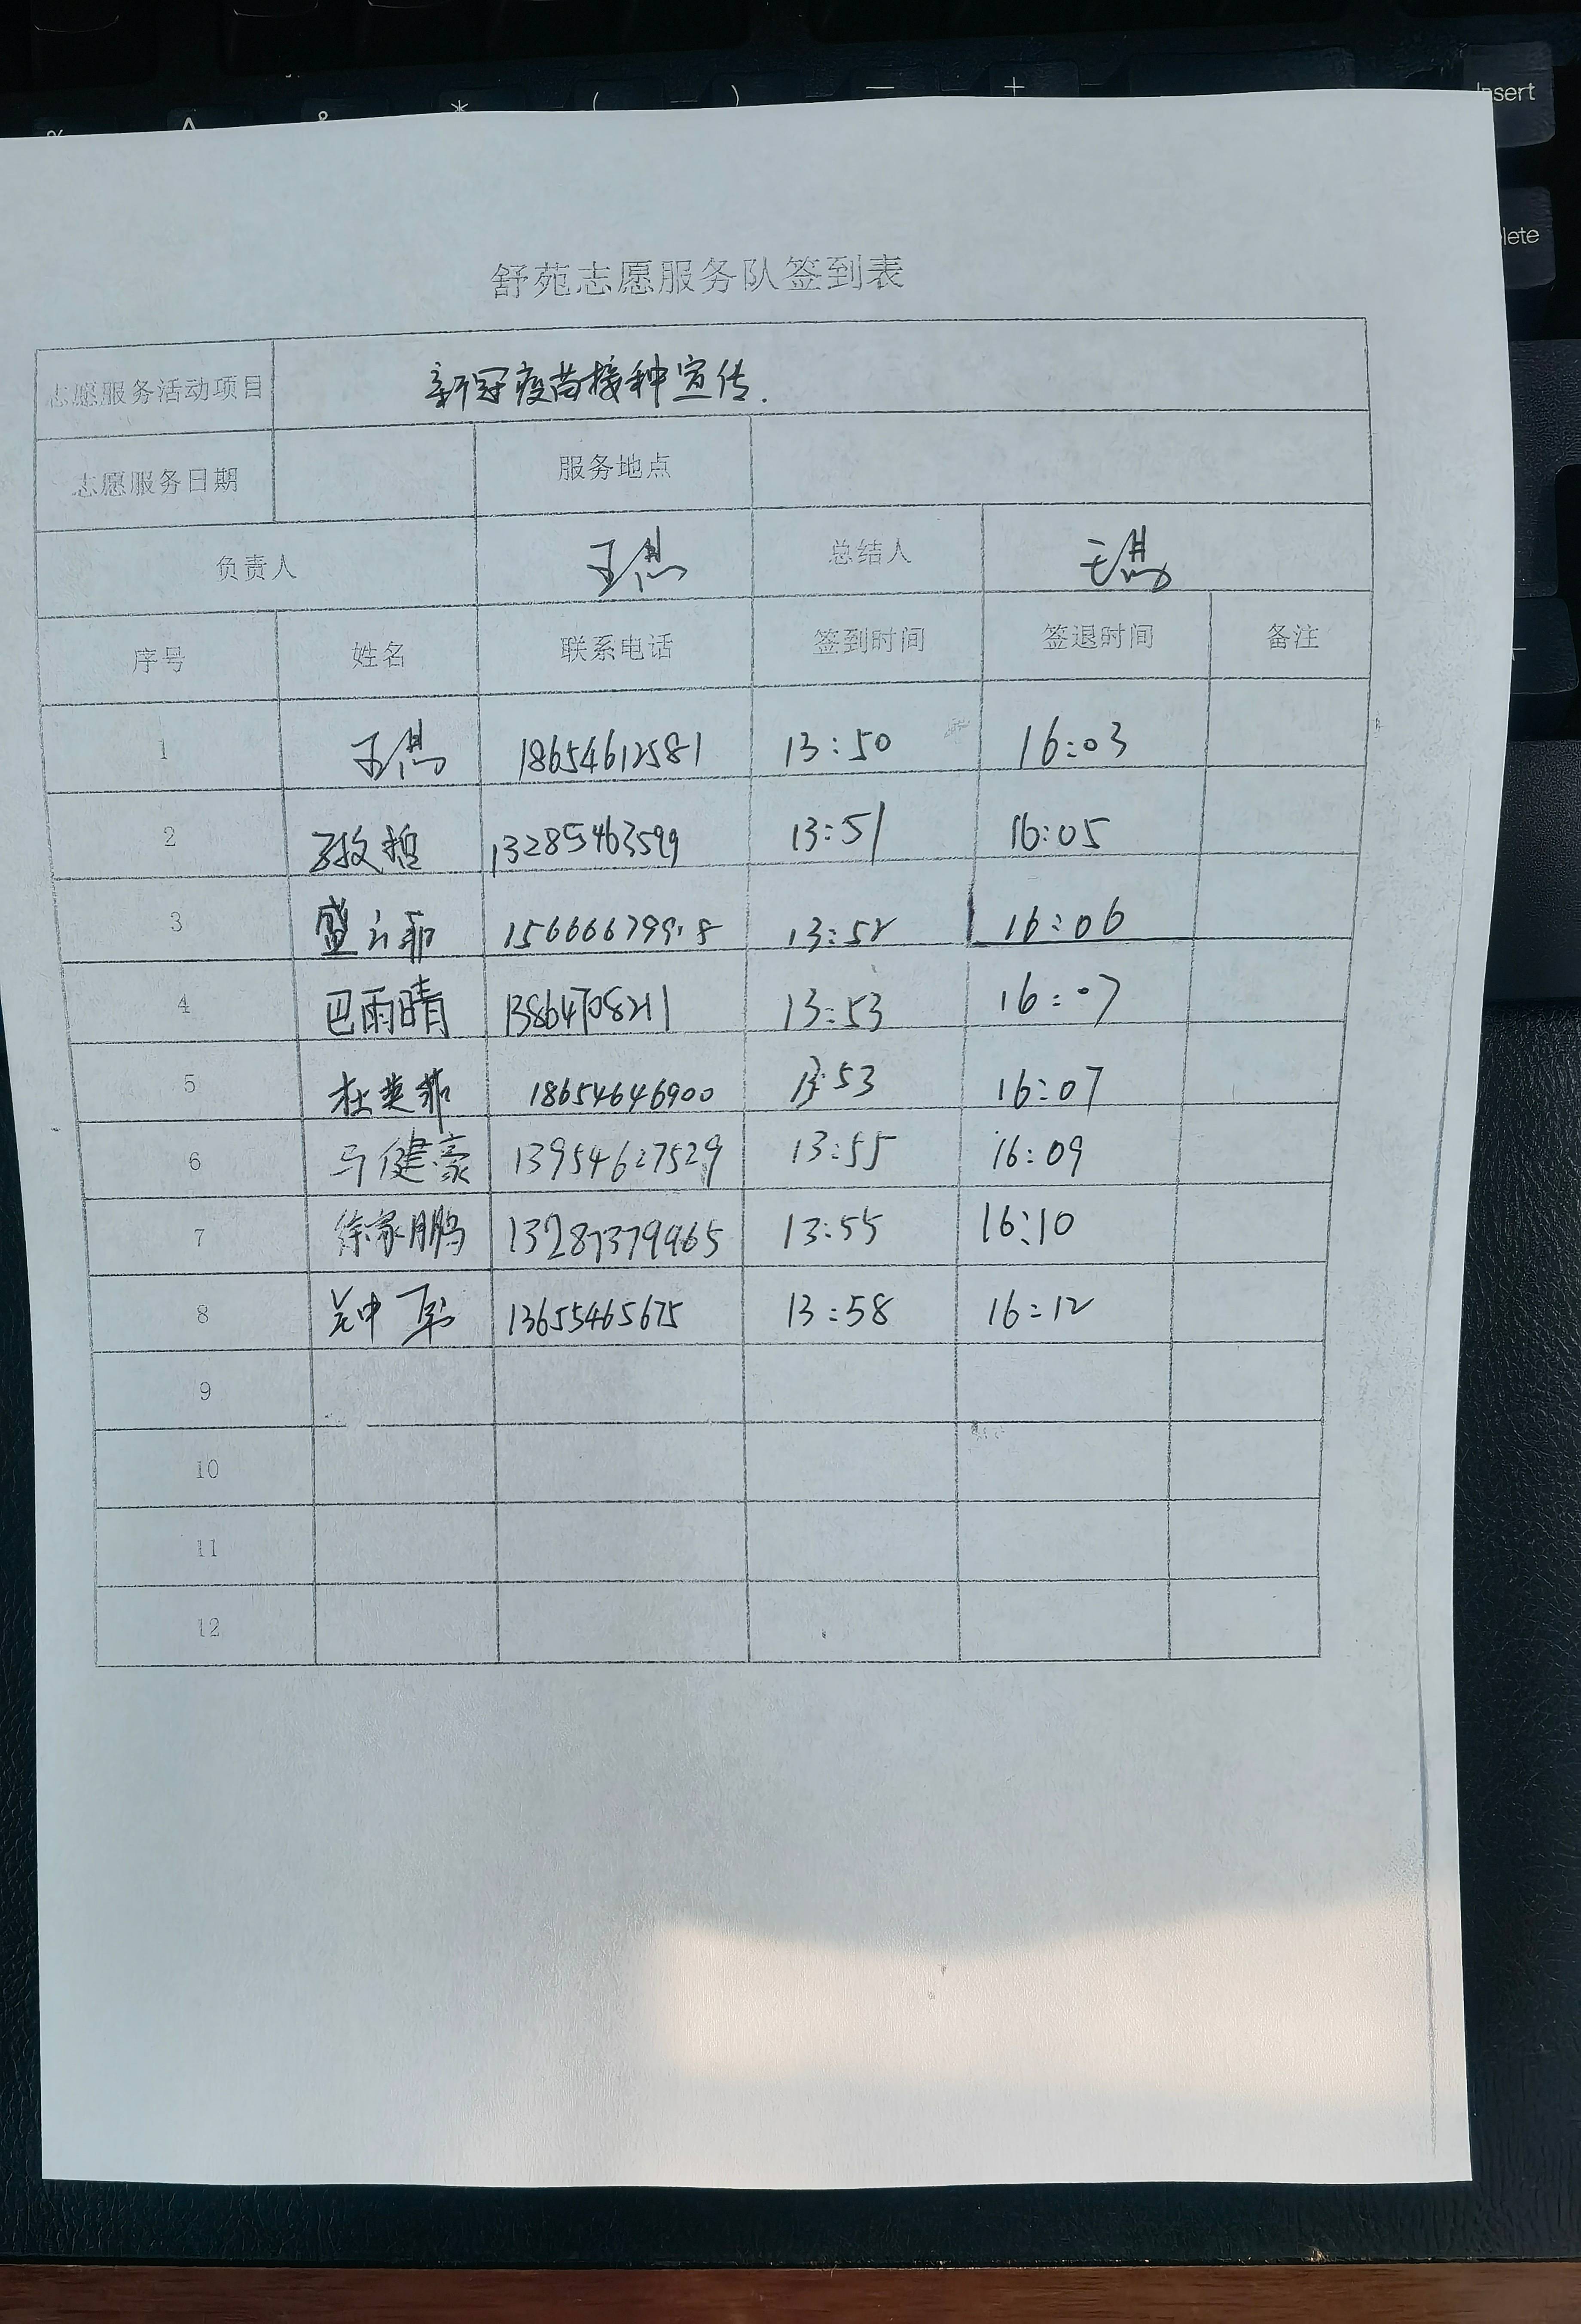 % ^ & * ( ) — + Insert
lete
舒苑志愿服务队签到表
志愿服务活动项目 新冠疫苗接种宣传.
志愿服务日期 服务地点
负责人 总结人
序号 姓名 联系电话 签到时间 签退时间 备注
1 18654612581 13:50 16:03
2 13285463599 13:51 16:05
3 盛 13:52 16:06
4 巴雨晴 13:53 16:07
5 杜英菲 18654646900 13:53 16:07
6 马健豪 13954627529 13:55 16:09
7 徐家鹏 13287379965 13:55 16:10
8 13655465675 13:58 16:12
9
10
11
12